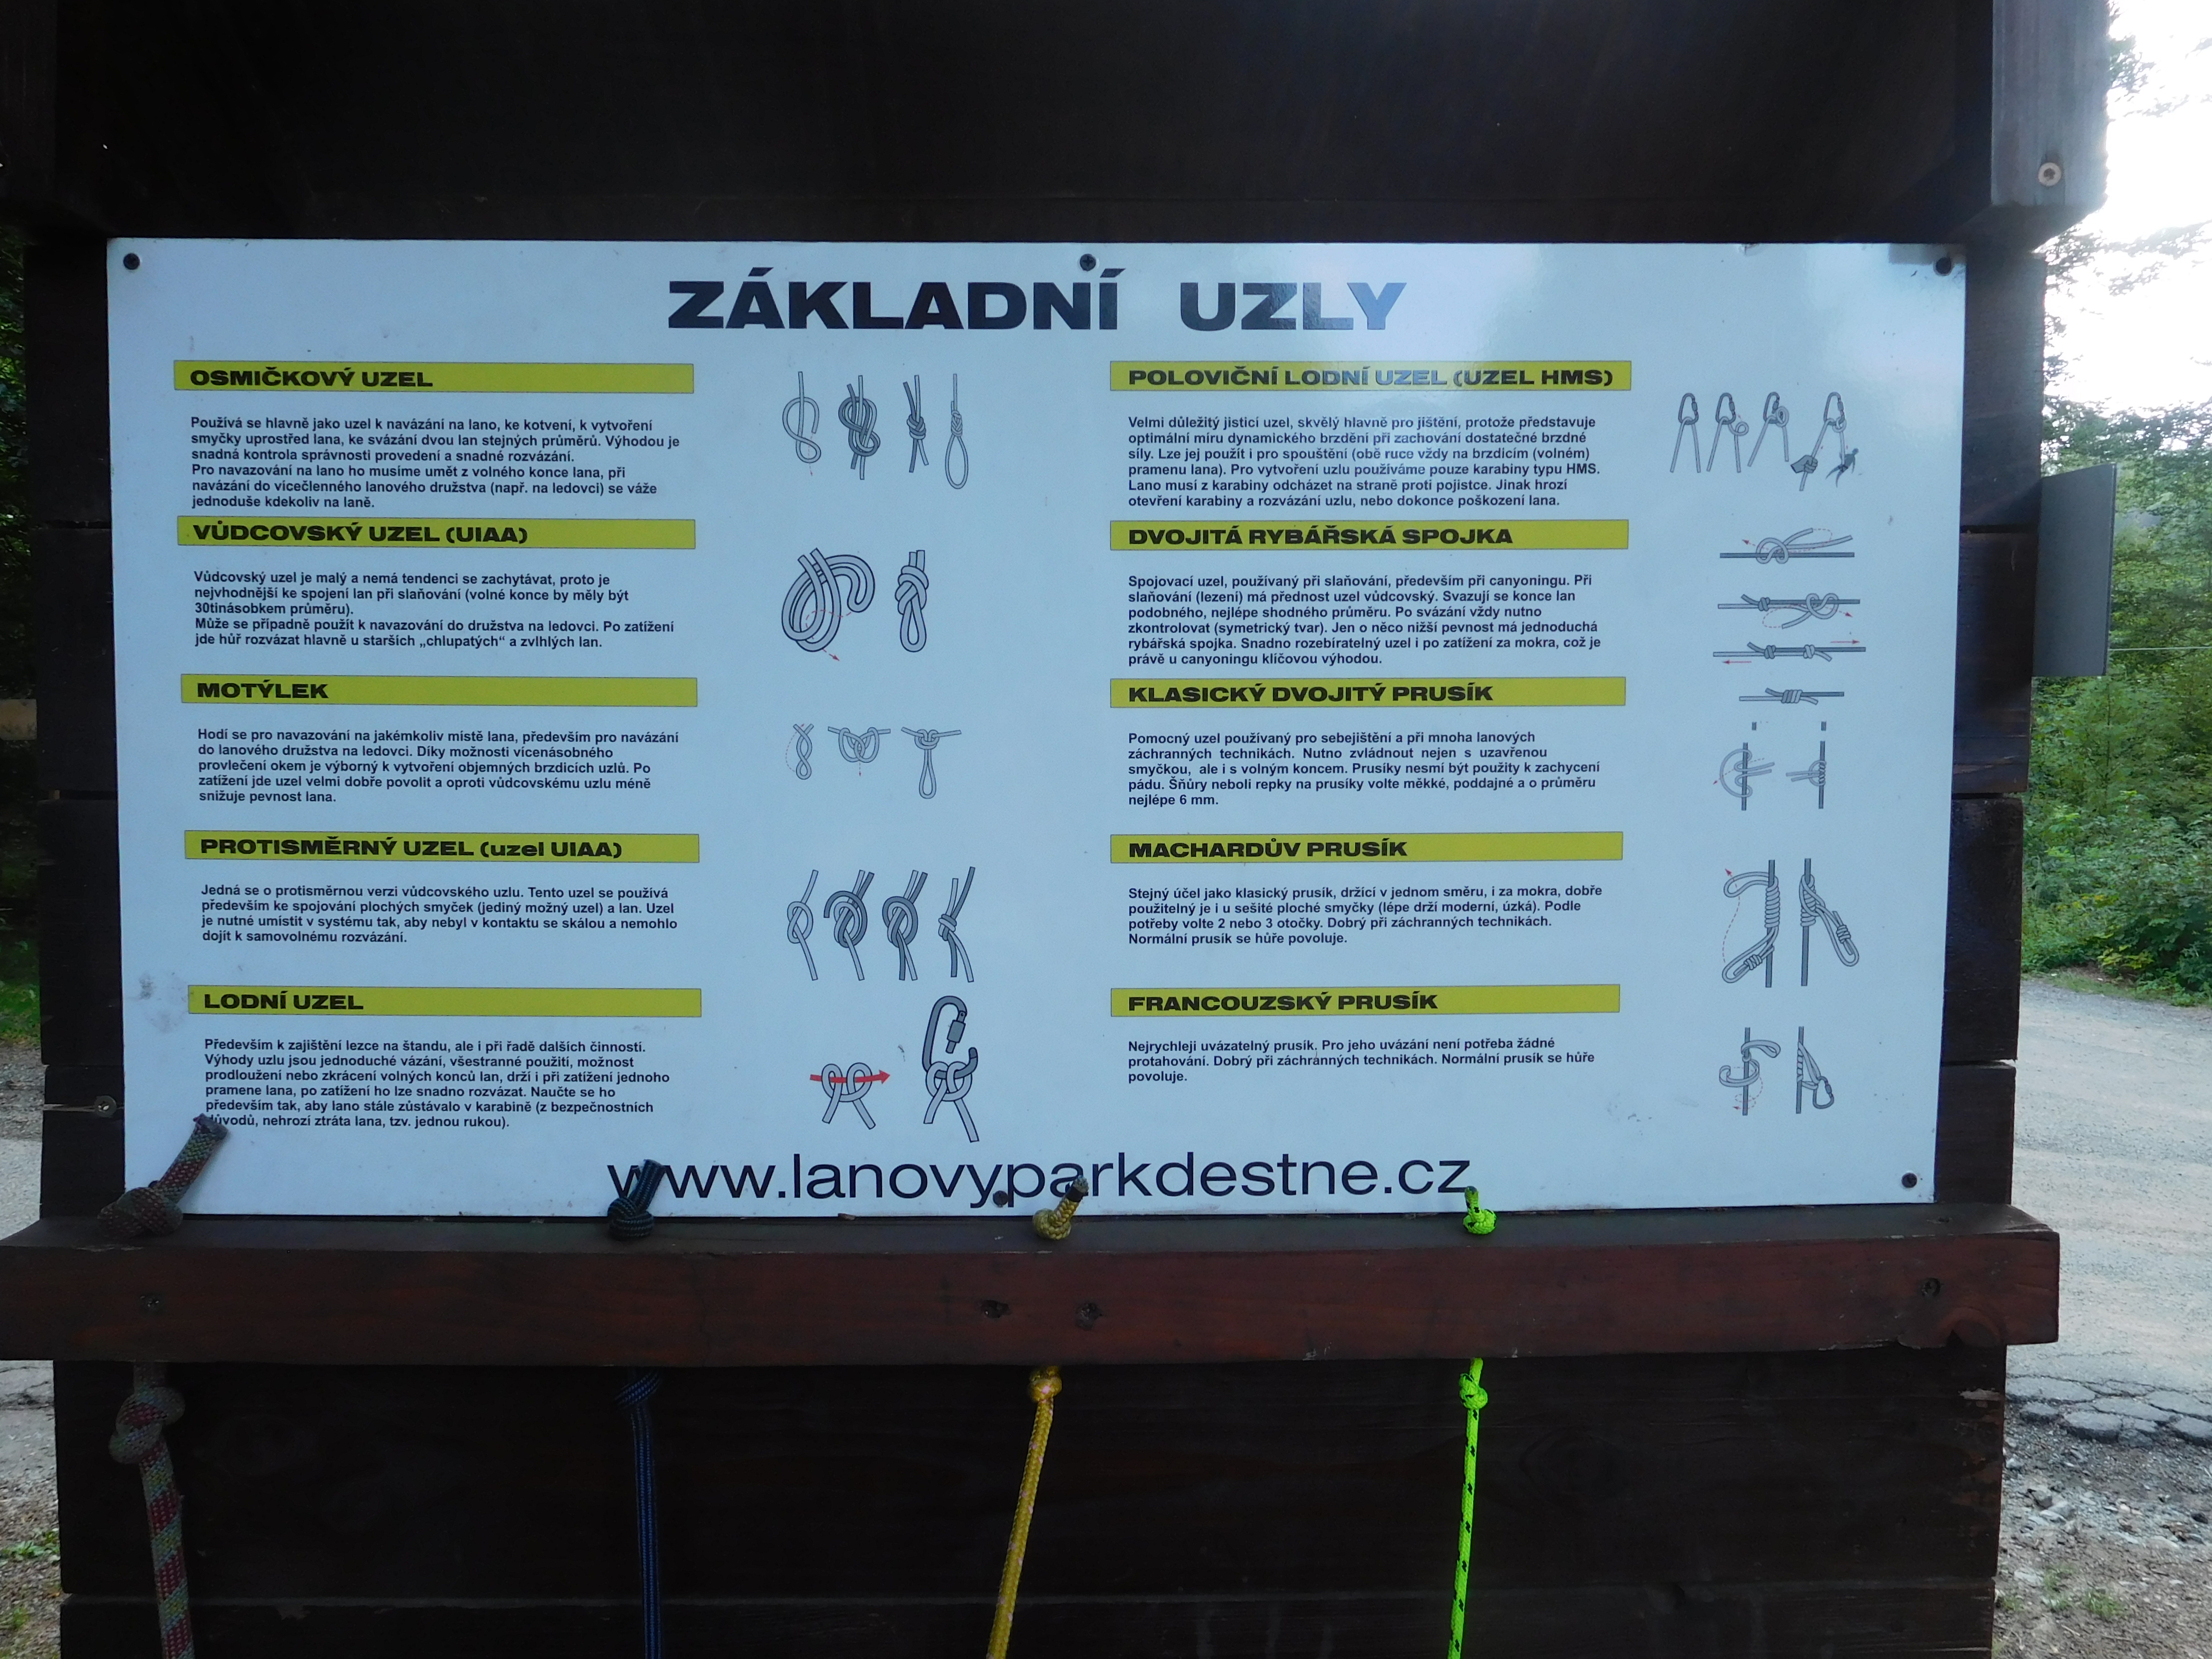 ZÁKLADNÍ UZLY
OSMIČKOVÝ UZEL
Používá se hlavně jako uzel k navázání na lano, ke kotvení, k vytvoření
smyčky uprostřed lana, ke svázání dvou lan stejných průměrů. Výhodou je
snadná kontrola správnosti provedení a snadné rozvázání.
Pro navazování na lano ho musíme umět z volného konce lana, při
navázání do vícečlenného lanového družstva (např. na ledovci) se váže
jednoduše kdekoliv na laně.
VŮDCOVSKÝ UZEL (UIAA)
Vůdcovský uzel je malý a nemá tendenci se zachytávat, proto je
nejvhodnější ke spojení lan při slaňování (volné konce by měly být
30tinásobkem průměru).
Může se případně použít k navazování do družstva na ledovci. Po zatížení
jde hůř rozvázat hlavně u starších „chlupatých“ a zvlhlých lan.
MOTÝLEK
Hodí se pro navazování na jakémkoliv místě lana, především pro navázání
do lanového družstva na ledovci. Díky možnosti vícenásobného
provlečení okem je výborný k vytvoření objemných brzdicích uzlů. Po
zatížení jde uzel velmi dobře povolit a oproti vůdcovskému uzlu méně
snižuje pevnost lana.
PROTISMĚRNÝ UZEL (uzel UIAA)
Jedná se o protisměrnou verzi vůdcovského uzlu. Tento uzel se používá
především ke spojování plochých smyček (jediný možný uzel) a lan. Uzel
je nutné umístit v systému tak, aby nebyl v kontaktu se skálou a nemohlo
dojít k samovolnému rozvázání.
LODNÍ UZEL
Především k zajištění lezce na štandu, ale i při řadě dalších činností.
Výhody uzlu jsou jednoduché vázání, všestranné použití, možnost
prodloužení nebo zkrácení volných konců lan, drží i při zatížení jednoho
pramene lana, po zatížení ho lze snadno rozvázat. Naučte se ho
především tak, aby lano stále zůstávalo v karabině (z bezpečnostních
důvodů, nehrozí ztráta lana, tzv. jednou rukou).
POLOVIČNÍ LODNÍ UZEL (UZEL HMS)
Velmi důležitý jisticí uzel, skvělý hlavně pro jištění, protože představuje
optimální míru dynamického brzdění při zachování dostatečné brzdné
síly. Lze jej použít i pro spouštění (obě ruce vždy na brzdicím (volném)
pramenu lana). Pro vytvoření uzlu používáme pouze karabiny typu HMS.
Lano musí z karabiny odcházet na straně proti pojistce. Jinak hrozí
otevření karabiny a rozvázání uzlu, nebo dokonce poškození lana.
DVOJITÁ RYBÁŘSKÁ SPOJKA
Spojovací uzel, používaný při slaňování, především při canyoningu. Při
slaňování (lezení) má přednost uzel vůdcovský. Svazují se konce lan
podobného, nejlépe shodného průměru. Po svázání vždy nutno
zkontrolovat (symetrický tvar). Jen o něco nižší pevnost má jednoduchá
rybářská spojka. Snadno rozebíratelný uzel i po zatížení za mokra, což je
právě u canyoningu klíčovou výhodou.
KLASICKÝ DVOJITÝ PRUSÍK
Pomocný uzel používaný pro sebejištění a při mnoha lanových
záchranných technikách. Nutno zvládnout nejen s uzavřenou
smyčkou, ale i s volným koncem. Prusíky nesmí být použity k zachycení
pádu. Šňůry neboli repky na prusíky volte měkké, poddajné a o průměru
nejlépe 6 mm.
MACHARDŮV PRUSÍK
Stejný účel jako klasický prusík, držící v jednom směru, i za mokra, dobře
použitelný je i u sešité ploché smyčky (lépe drží moderní, úzká). Podle
potřeby volte 2 nebo 3 otočky. Dobrý při záchranných technikách.
Normální prusík se hůře povoluje.
FRANCOUZSKÝ PRUSÍK
Nejrychleji uvázatelný prusík. Pro jeho uvázání není potřeba žádné
protahování. Dobrý při záchranných technikách. Normální prusík se hůře
povoluje.
www.lanovyparkdestne.cz